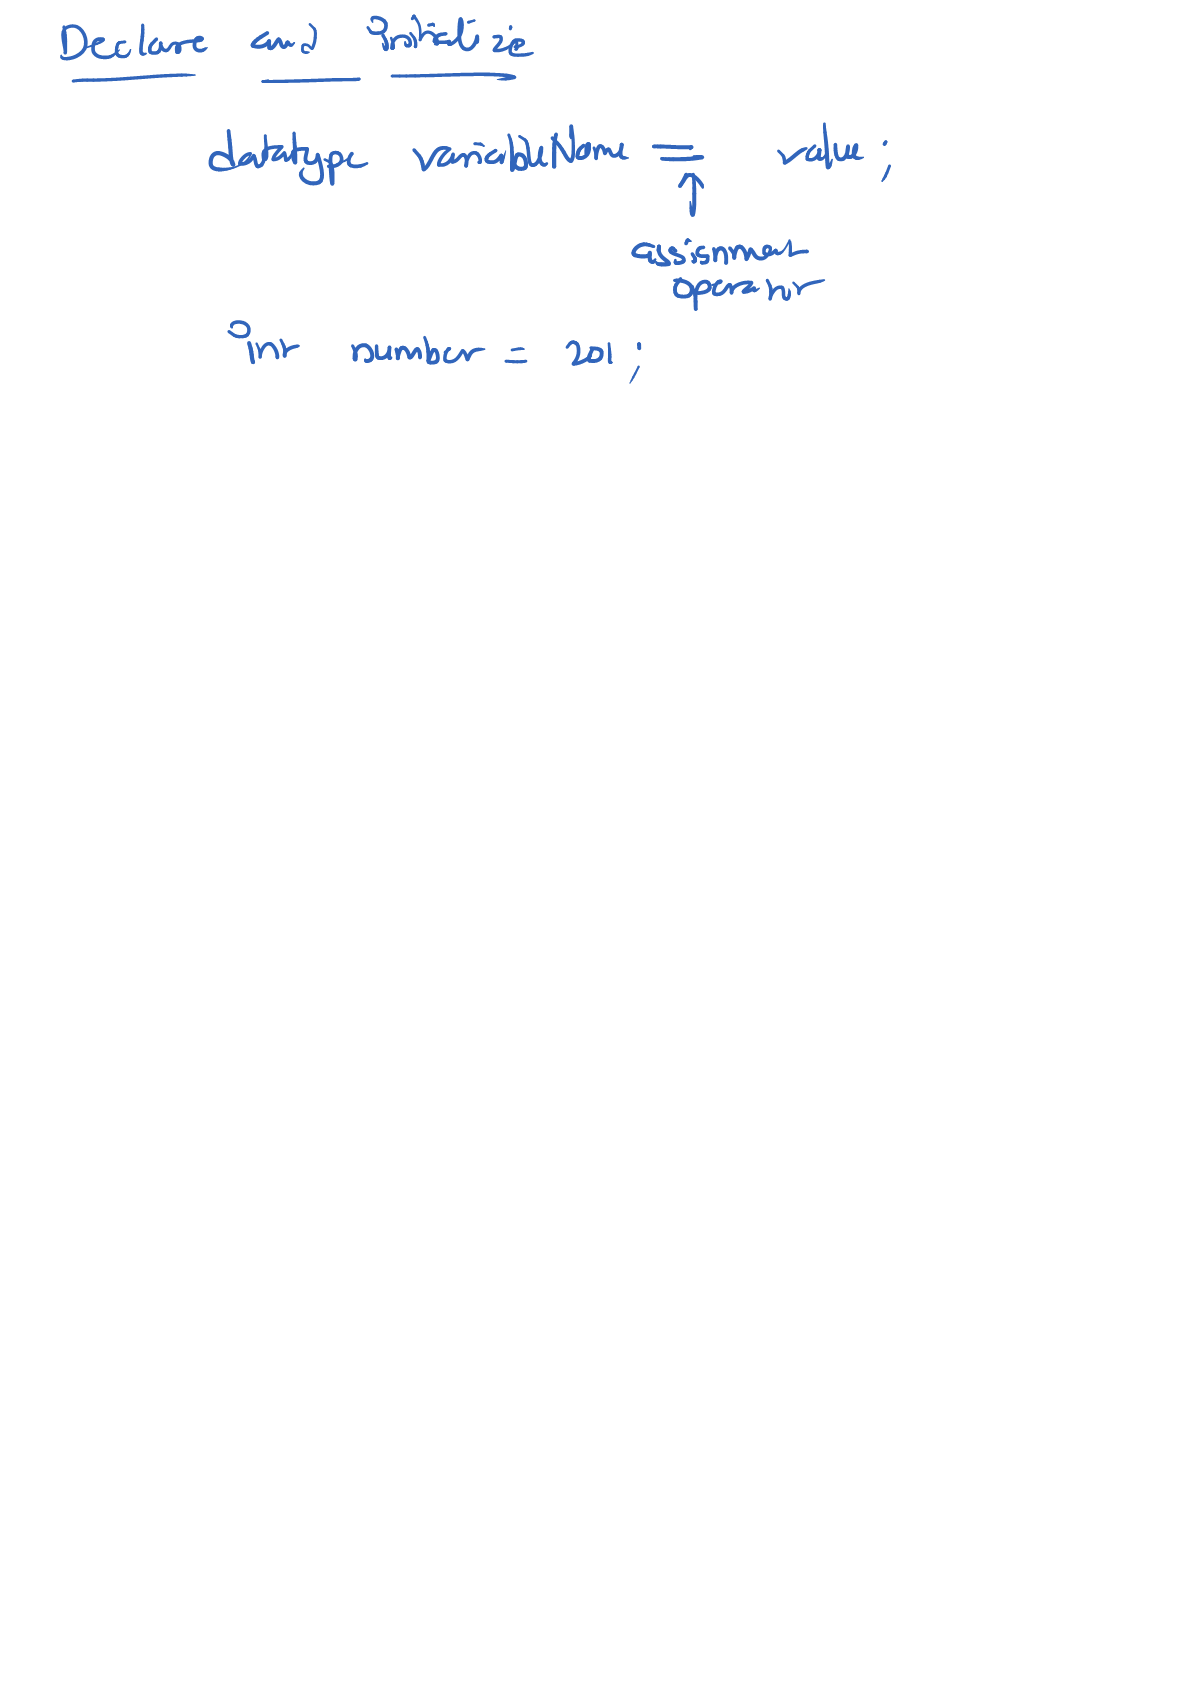 Declare and initialize
datatype variableName = value;
assignment
operator
int number = 201;